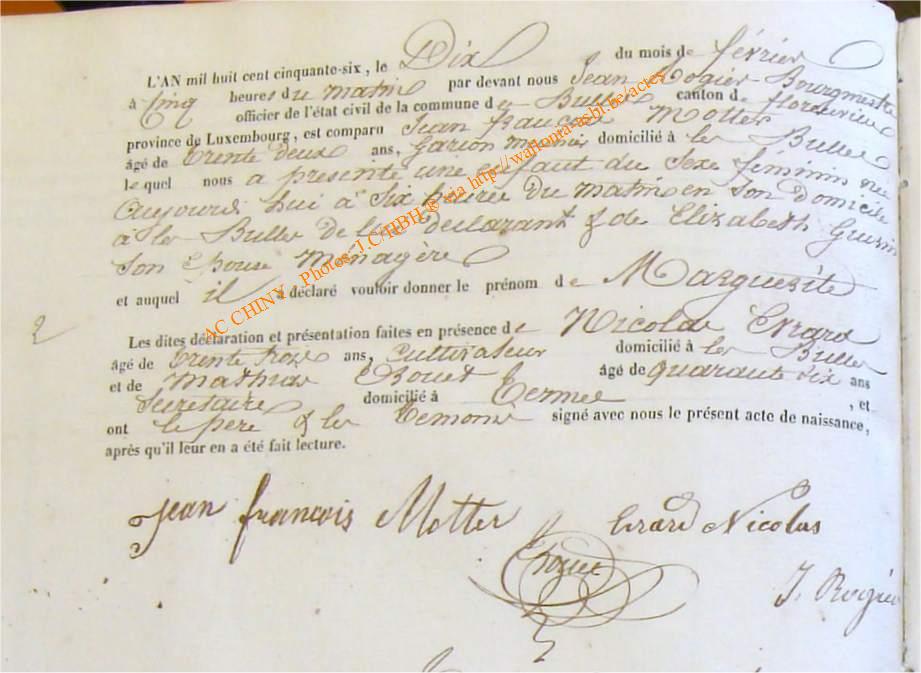 L'AN mil huit cent cinquante-six, le Dix du mois de février
à Cinq heures du matin par devant nous Jean Rogier Bourgmestre
officier de l'état civil de la commune de Bulles canton de florenville
province de Luxembourg, est comparu Jean françois Motter
âgé de trente deux ans, Garion domicilié à les Bulles
lequel nous a présenté une enfant du Sexe feminin née
aujourd hui à Six heures du matin en Son domicile
à les Bulles de lui déclarant & de Elizabeth
Son Epouse Ménagère
et auquel il a déclaré vouloir donner le prénom de Marguerite
2
Les dites déclaration et présentation faites en présence de Nicolas Erard
âgé de trente trois ans, Cultivateur domicilié à les Bulles
et de Mathias Chouet âgé de quarante Six ans
Secretaire domicilié à Termes , et
ont le père & les temoins signé avec nous le présent acte de naissance,
après qu'il leur en a été fait lecture.
jean françois Motter Erard Nicolas
J. Rogier
AC CHINY - Photos J.C/RBH ® via http://wallonia-asbl.be/actes